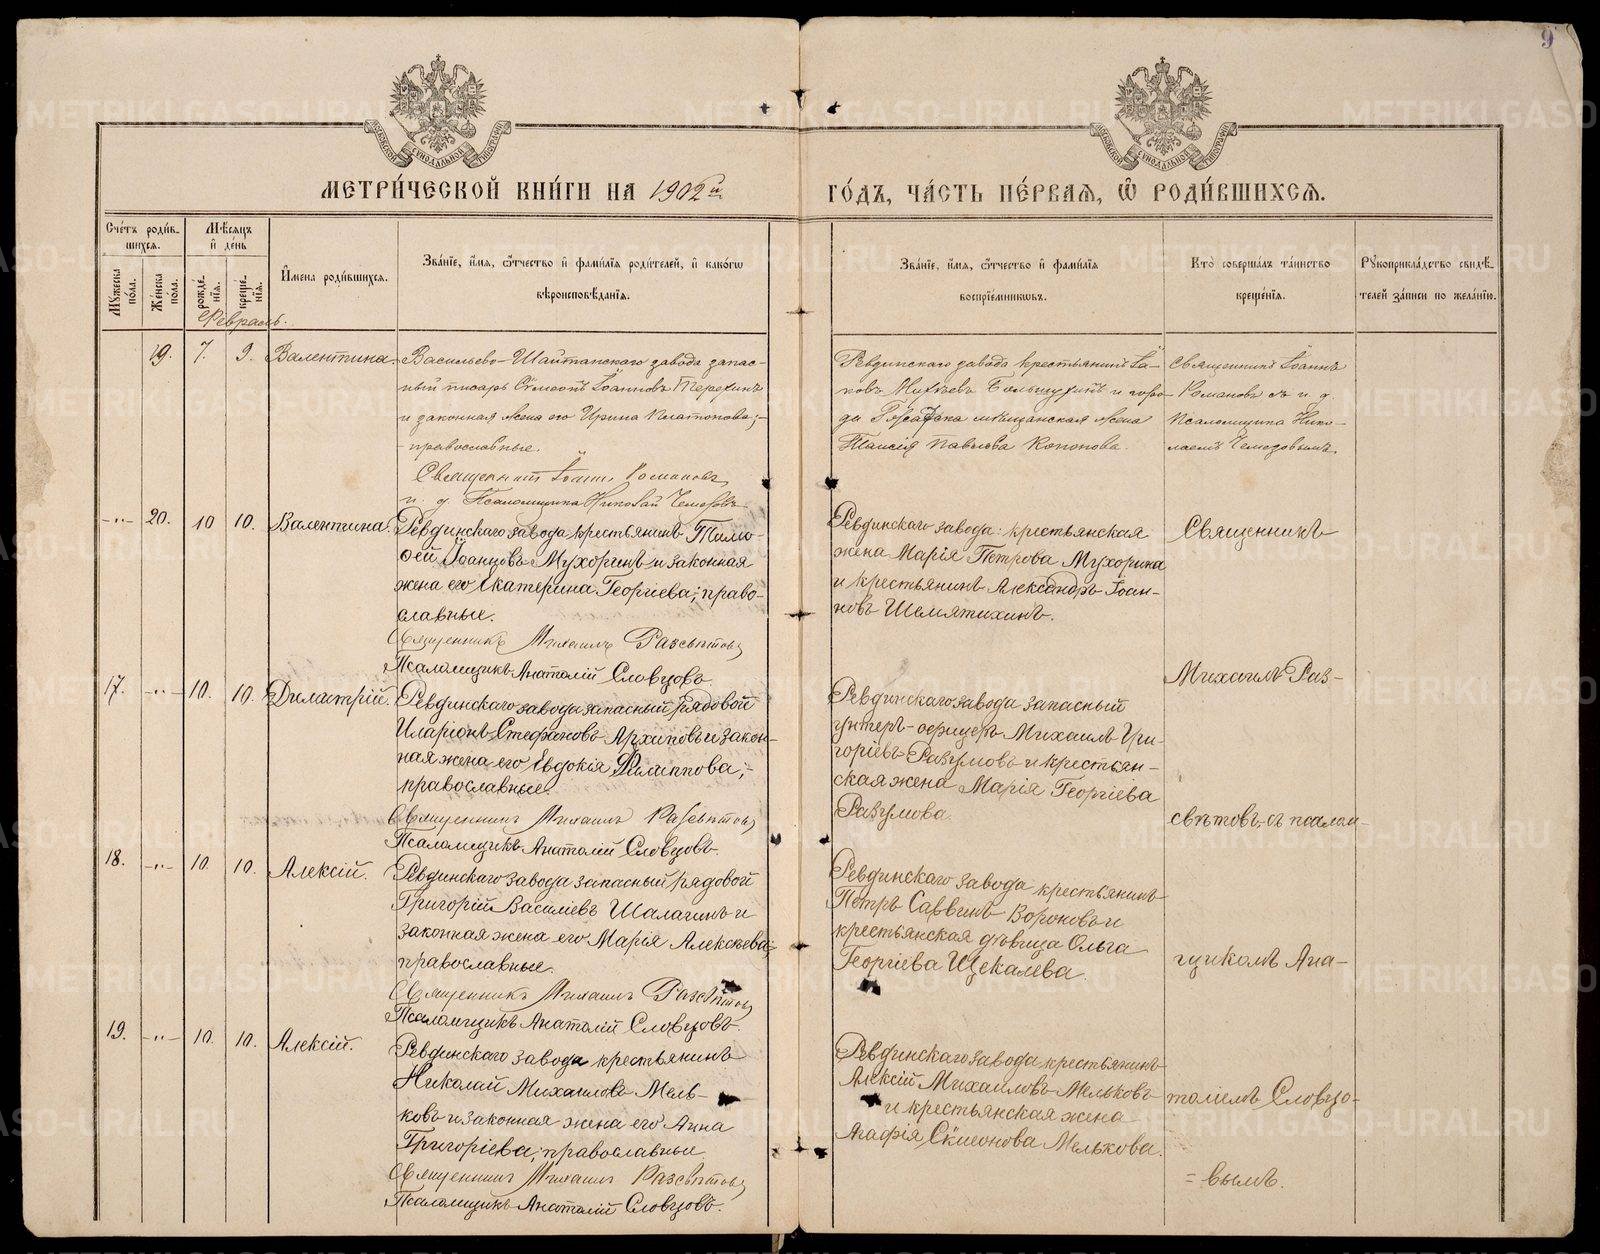 9
МОСКОВСКОЙ СѴНОДАЛЬНОЙ ТИПОГРАФІИ
МОСКОВСКОЙ СѴНОДАЛЬНОЙ ТИПОГРАФІИ
МЕТРИ́ЧЕСКОЙ КНИ́ГИ НА 1902й
ГО́ДЪ, ЧА́СТЬ ПЕ́РВАѦ, Ѽ РОДИ́ВШИХСѦ.
Сче́тъ роди́в-
шихся.
Мѣ́сяцъ
и́ де́нь
Мꙋ́жеска
по́ла.
Же́нска
по́ла.
рожде́-
нїѧ.
креще́-
нїѧ.
И́мена роди́вшихся.
Зва́нїе, и́мѧ, ѻ҆́тчество и҆ фами́лїѧ роди́телей, и҆ како́гѡ
вѣроисповѣ́данїѧ.
Зва́нїе, и́мѧ, ѻ҆́тчество и҆ фами́лїѧ
воспрїе́мникѡвъ.
Кто̀ соверша́лъ та́инство
креще́нїѧ.
Рꙋкоприкла́дство свидѣ́-
телей за́писи по жела́нїю.
Февраль.
19. 7. 9. Валентина.
Васильево-Шайтанскаго завода запас-
ный писарь Сѵмеонъ Іоанновъ Терехинъ
и законная жена его Ирина Платонова;-
-православные.
Священникъ Іоаннъ Романовъ
и. д. Псаломщика Николай Чемодовъ
Ревдинскаго завода крестьянинъ Іа-
ковъ Михѣевъ и горо-
да мѣщанская жена
Таисія Павлова Кононова.
Священникъ Іоаннъ
Романовъ съ и. д.
Псаломщика Нико-
лаемъ Чемодовымъ.
-"- 20. 10 10. Валентина.
Ревдинскаго завода крестьянинъ Тимо-
ѳей Іоанновъ Мухоринъ и законная
жена его Екатерина Георгіева; право-
славные.
Священникъ Михаилъ Разсвѣтовъ
Псаломщикъ Анатолій Словцовъ.
Ревдинскаго завода: крестьянская
жена Марія Петрова Мухорина
и крестьянинъ Александръ Іоан-
новъ Шемятихинъ.
Священникъ
17. -"- 10. 10. Димитрій.
Ревдинскаго завода запасный рядовой
Иларіонъ Стефановъ Архиповъ и закон-
ная жена его Евдокія Филиппова;-
православные.
Священникъ Михаилъ Разсвѣтовъ
Псаломщикъ Анатолій Словцовъ.
Ревдинскаго завода запасный
унтеръ-офицеръ Михаилъ Гри-
горіевъ Разумовъ и крестьян-
ская жена Марія Георгіева
Разумова.
Михаилъ Раз-
свѣтовъ, съ псалом-
18. -"- 10. 10. Алексій.
Ревдинскаго завода запасный рядовой
Григорій Василіевъ Шалагинъ и
законная жена его Марія Алексѣева;
православные.
Священникъ Михаилъ Разсвѣтовъ
Псаломщикъ Анатолій Словцовъ.
Ревдинскаго завода крестьянинъ
Петръ Саввинъ Вороновъ и
крестьянская дѣвица Ольга
Георгіева Щекалева.
щикомъ Ана-
19. -"- 10. 10. Алексій.
Ревдинскаго завода крестьянинъ
Николай Михаиловъ Мель-
ковъ и законная жена его Анна
Григоріева; православные.
Священникъ Михаилъ Разсвѣтовъ
Псаломщикъ Анатолій Словцовъ.
Ревдинскаго завода крестьянинъ
Алексій Михаиловъ Мельковъ
и крестьянская жена
Агафія Сѵмеонова Мелькова.
толіемъ Словцо-
=вымъ.